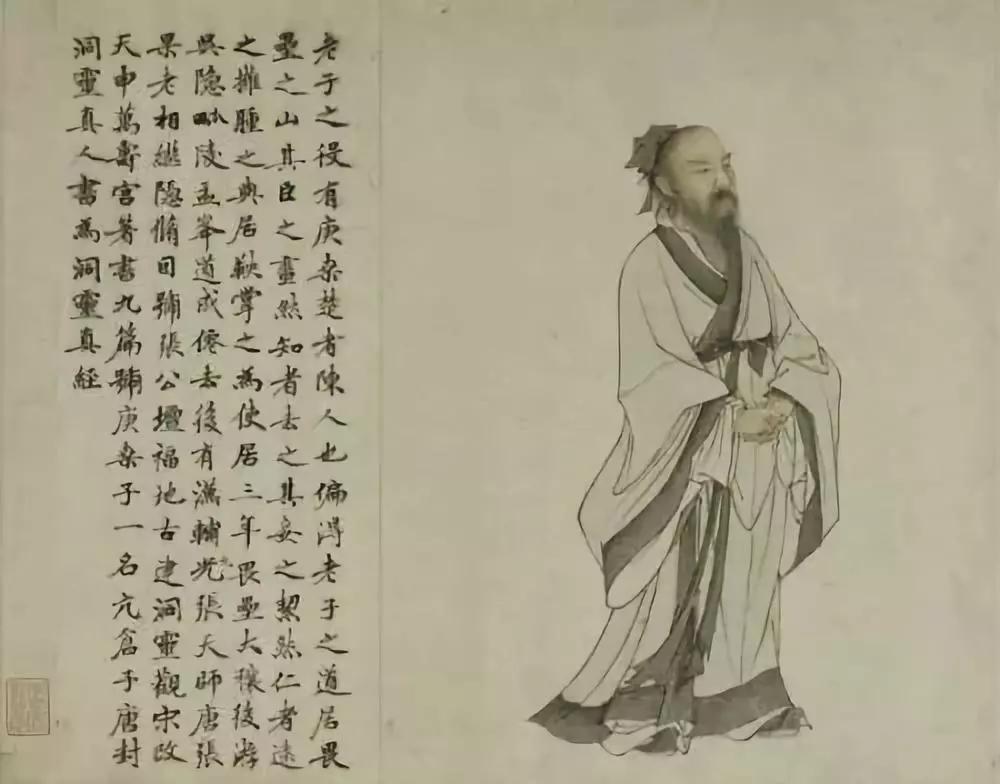 老子之役有庚桒楚者陳人也偏得老子之道居畏
壘之山其臣之畫然知者去之其妾之絜然仁者遠
之擁腫之與居鞅掌之為使居三年畏壘大穰後游
吳隱毗陵盂峯道成僊去後有漢輔光張天師唐張
果老相繼隱脩目號張公壇福地古建洞靈觀宋改
天申萬壽宮著書九篇號庚桒子一名亢倉子唐封
洞靈真人書為洞靈真經